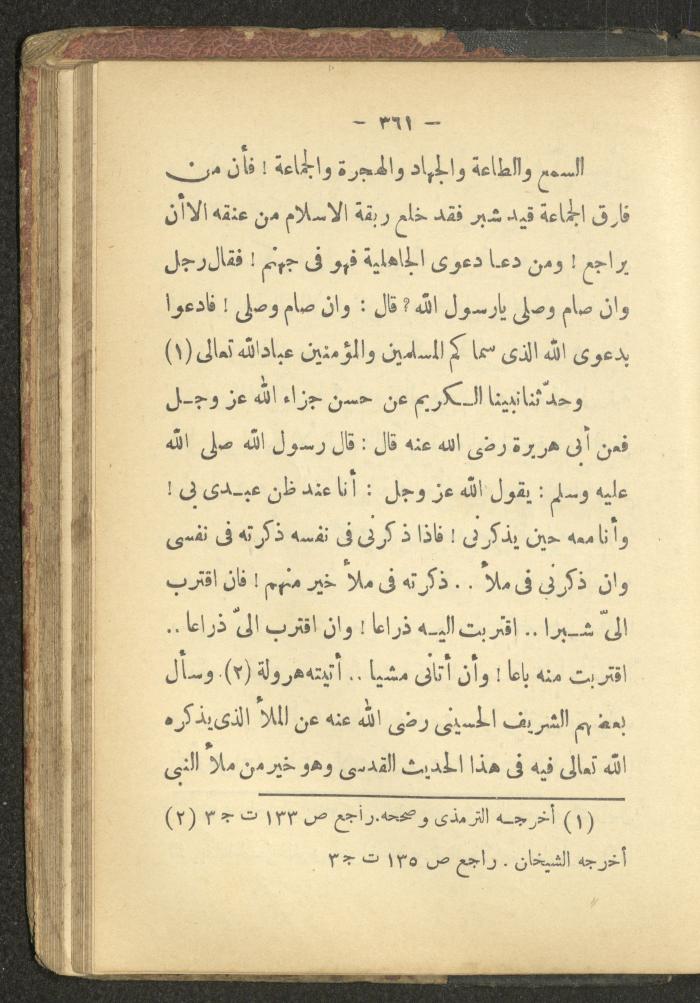 — ٣٦١ —
السمع والطاعة والجهاد والهجرة والجماعة ! فأن من
فارق الجماعة قيد شبر فقد خلع ربقة الاسلام من عنقه الاأن
يراجع ! ومن دعا دعوى الجاهلية فهو فى جهنم ! فقال رجل
وان صام وصلى يارسول الله ? قال : وان صام وصلى ! فادعوا
بدعوى الله الذى سماكم المسلمين والمؤمنين عبادالله تعالى (١)
وحدّثنانبينا الـكريم عن حسن جزاء الله عز وجـل
فعن أبى هريرة رضى الله عنه قال : قال رسول الله صلى الله
عليه وسلم : يقول الله عز وجل : أنا عند ظن عبـدى بى !
وأنا معه حين يذكرنى ! فاذا ذكرنى فى نفسه ذكرته فى نفسى
وان ذكرنى فى ملأ . . ذكرته فى ملأ خير منهم ! فان اقترب
الىّ شـبرا .. اقتربت اليـه ذراعا ! وان اقترب الىّ ذراعا ..
اقتربت منه باعا ! وأن أتانى مشيا .. أتيته هرولة (٢) . وسأل
بعضهم الشريف الحسينى رضى الله عنه عن الملأ الذى يذكره
الله تعالى فيه فى هذا الحديث القدسى وهو خير من ملأ النبى
(١) أخرجـه الترمذى وصححه.راجع ص ١٣٣ ت ج ٣ (٢)
أخرجه الشيخان . راجع ص ١٣٥ ت ج ٣